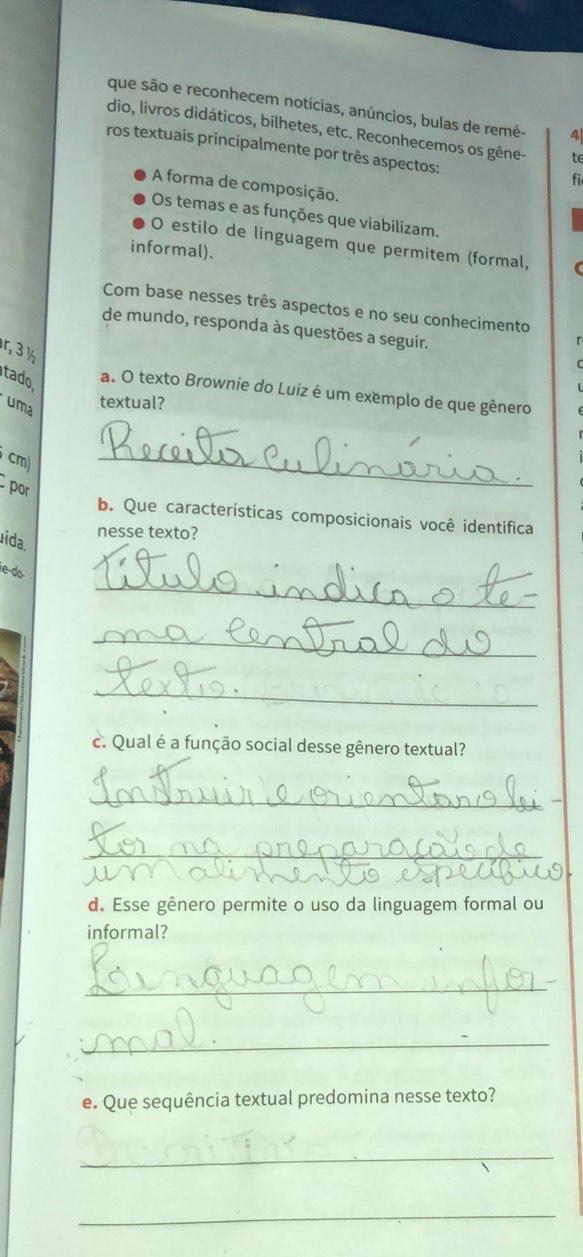 que são e reconhecem notícias, anúncios, bulas de remé-
dio, livros didáticos, bilhetes, etc. Reconhecemos os gêne-
ros textuais principalmente por três aspectos:
● A forma de composição.
● Os temas e as funções que viabilizam.
● O estilo de linguagem que permitem (formal,
informal).
Com base nesses três aspectos e no seu conhecimento
de mundo, responda às questões a seguir.
a. O texto Brownie do Luiz é um exemplo de que gênero
textual?
Receita Culinária.
b. Que características composicionais você identifica
nesse texto?
Título indica o te-
ma central do
texto.
c. Qual é a função social desse gênero textual?
Instruir e orientar o lei-
tor na preparação de
um alimento específico.
d. Esse gênero permite o uso da linguagem formal ou
informal?
Linguagem infor-
mal.
e. Que sequência textual predomina nesse texto?
ar, 3 ½
tado,
uma
cm)
por
uida.
ie-do-
4|
te